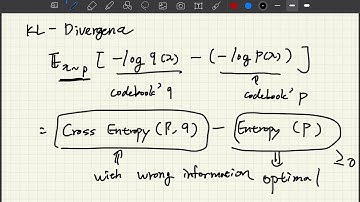 KL - Divergence
𝔼x~p [ -log q(x) - (-log p(x)) ]
codebook' q codebook' p
= Cross Entropy (P, q) - Entropy (P) ≥0
with wrong information optimal